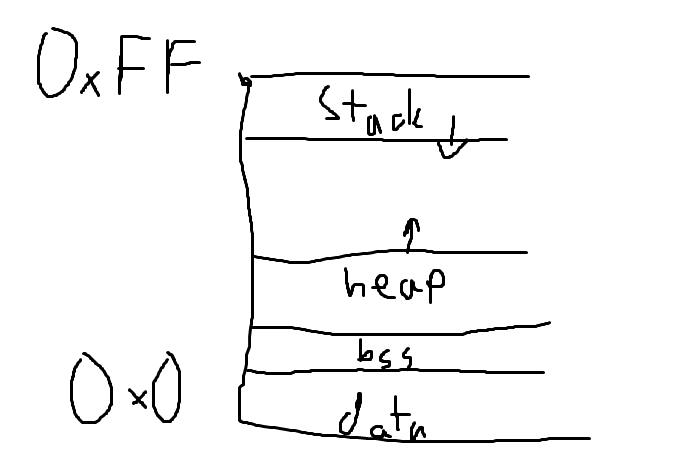 0xFF
stack
heap
bss
0x0
data